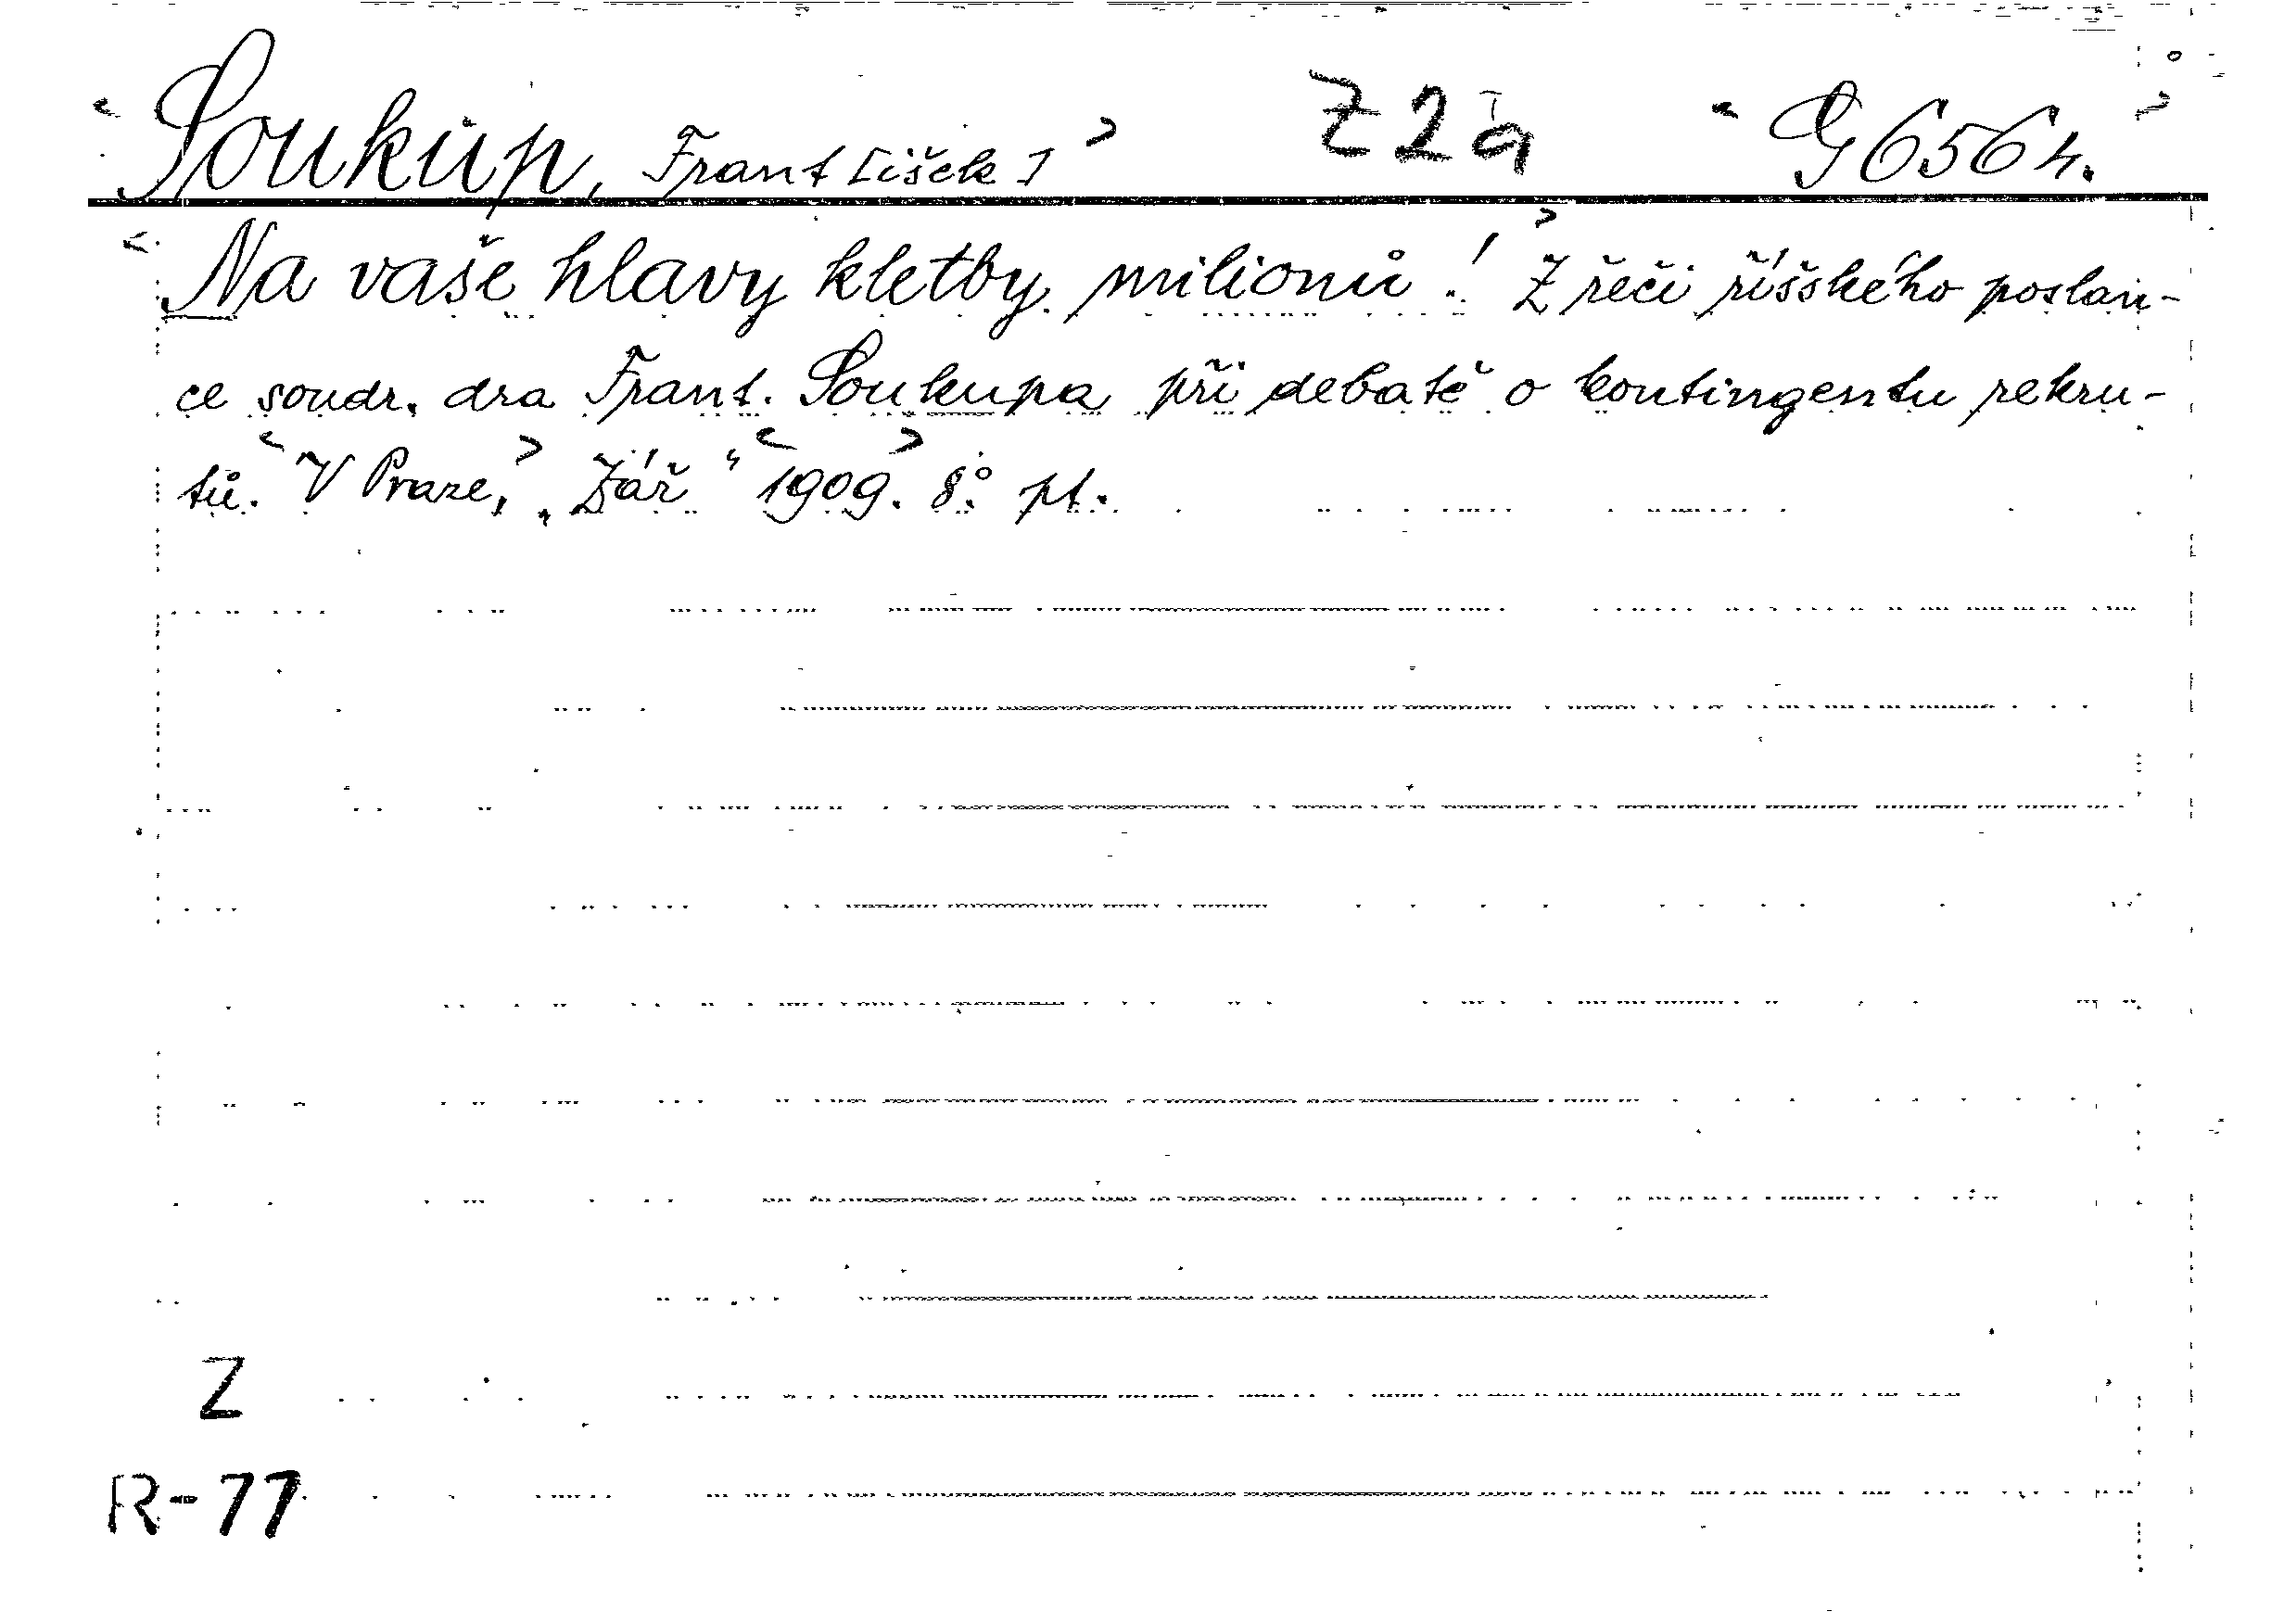 Soukup, Frant[išek] Z2a G 6564.
Na vaše hlavy kletby milionů! Z řeči říšského poslan-
ce soudr. dra Frant. Soukupa při debatě o kontingentu rekru-
tů. V Praze, „Zář“ 1909. 8° pt.
Z
R-77